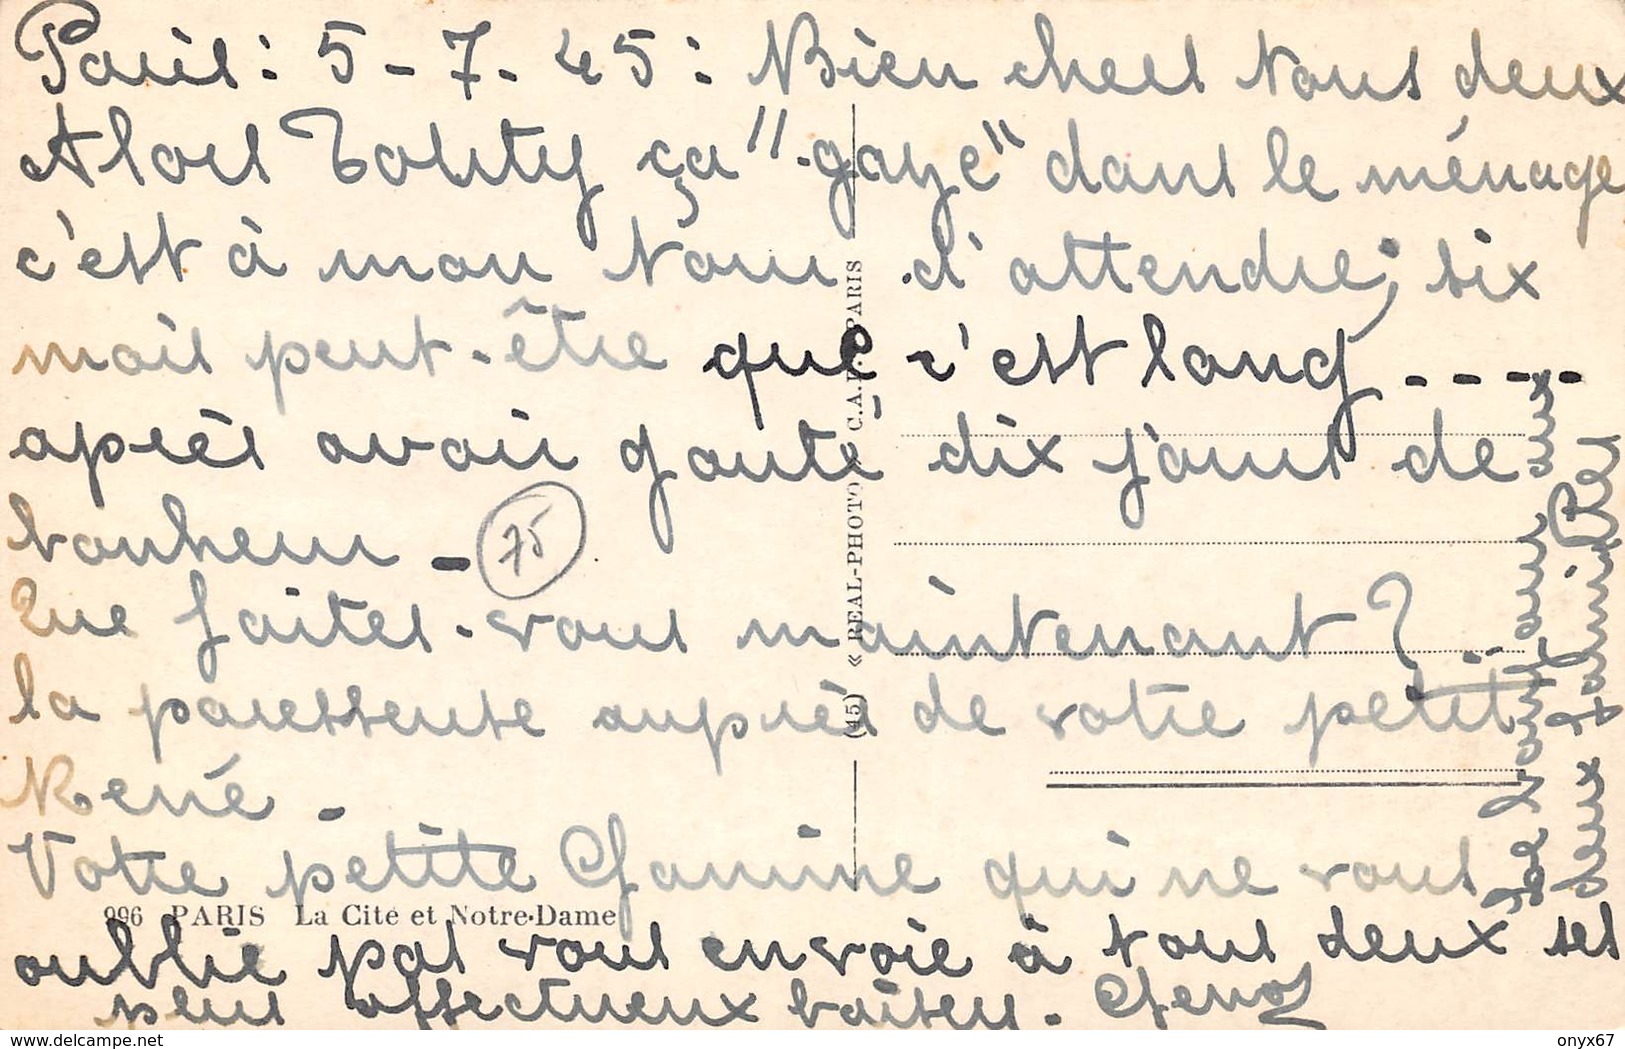 Paris : 5 - 7 - 45 : Bien chers vous deux
Alors Tohty ça "gaze" dans le ménage
c'est à mon tour d'attendre, six
mois peut-être que c'est long, - - - -
après avoir gouté dix jours de
bonheur -
75
Que faites-vous maintenant ?
la paresseuse auprès de votre petit
René -
Votre petite Janine qui ne vous
oublie pas vous envoie à tous deux ses
plus affectueux baisers -
bons baisers aux
deux familles
996 PARIS La Cité et Notre-Dame
(45) « REAL-PHOTO » C.A.P. PARIS
delcampe.net
onyx67